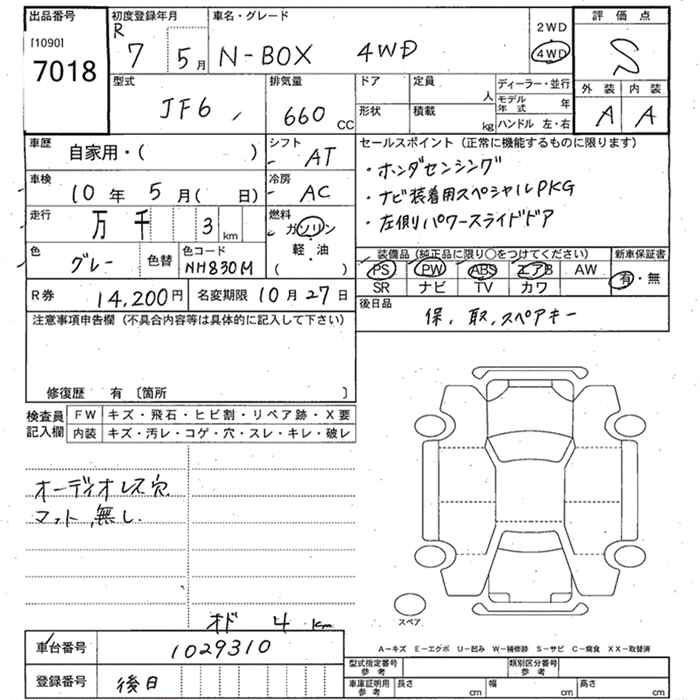 出品番号
[1090]
7018
初度登録年月
R 7 5月
車名・グレード
N-BOX 4WD
2WD
4WD
評価点
S
外装 内装
A A
型式
JF6
排気量
660 CC
ドア
定員
人
形状
積載
kg
ディーラー・並行
モデル年式 年
ハンドル 左・右
車歴
自家用・( )
シフト
AT
車検
10年5月( 日)
冷房
AC
走行
万 千 3 km
燃料
ガソリン
軽・油
( )
色
グレー
色替
色コード
NH830M
セールスポイント (正常に機能するものに限ります)
・ホンダセンシング
・ナビ装着用スペシャルPKG
・左側パワースライドドア
装備品(純正品に限り〇をつけてください)
新車保証書
PS PW ABS エアB AW
有・無
SR ナビ TV カワ
R券
14,200円
名変期限 10月27日
後日品
保、取、スペアキー
注意事項申告欄(不具合内容等は具体的に記入して下さい)
修復歴 有 〔箇所 〕
検査員記入欄
FW キズ・飛石・ヒビ割・リペア跡・X要
内装 キズ・汚レ・コゲ・穴・スレ・キレ・破レ
オーディオレス穴
マット無し
オド 4 Km
スペア
A-キズ E-エクボ U-凹み W-補修跡 S-サビ C-腐食 XX-取替済
車台番号
1029310
登録番号
後日
型式指定番号参考
類別区分番号
車庫証明用参考
長さ cm 幅 cm 高さ cm